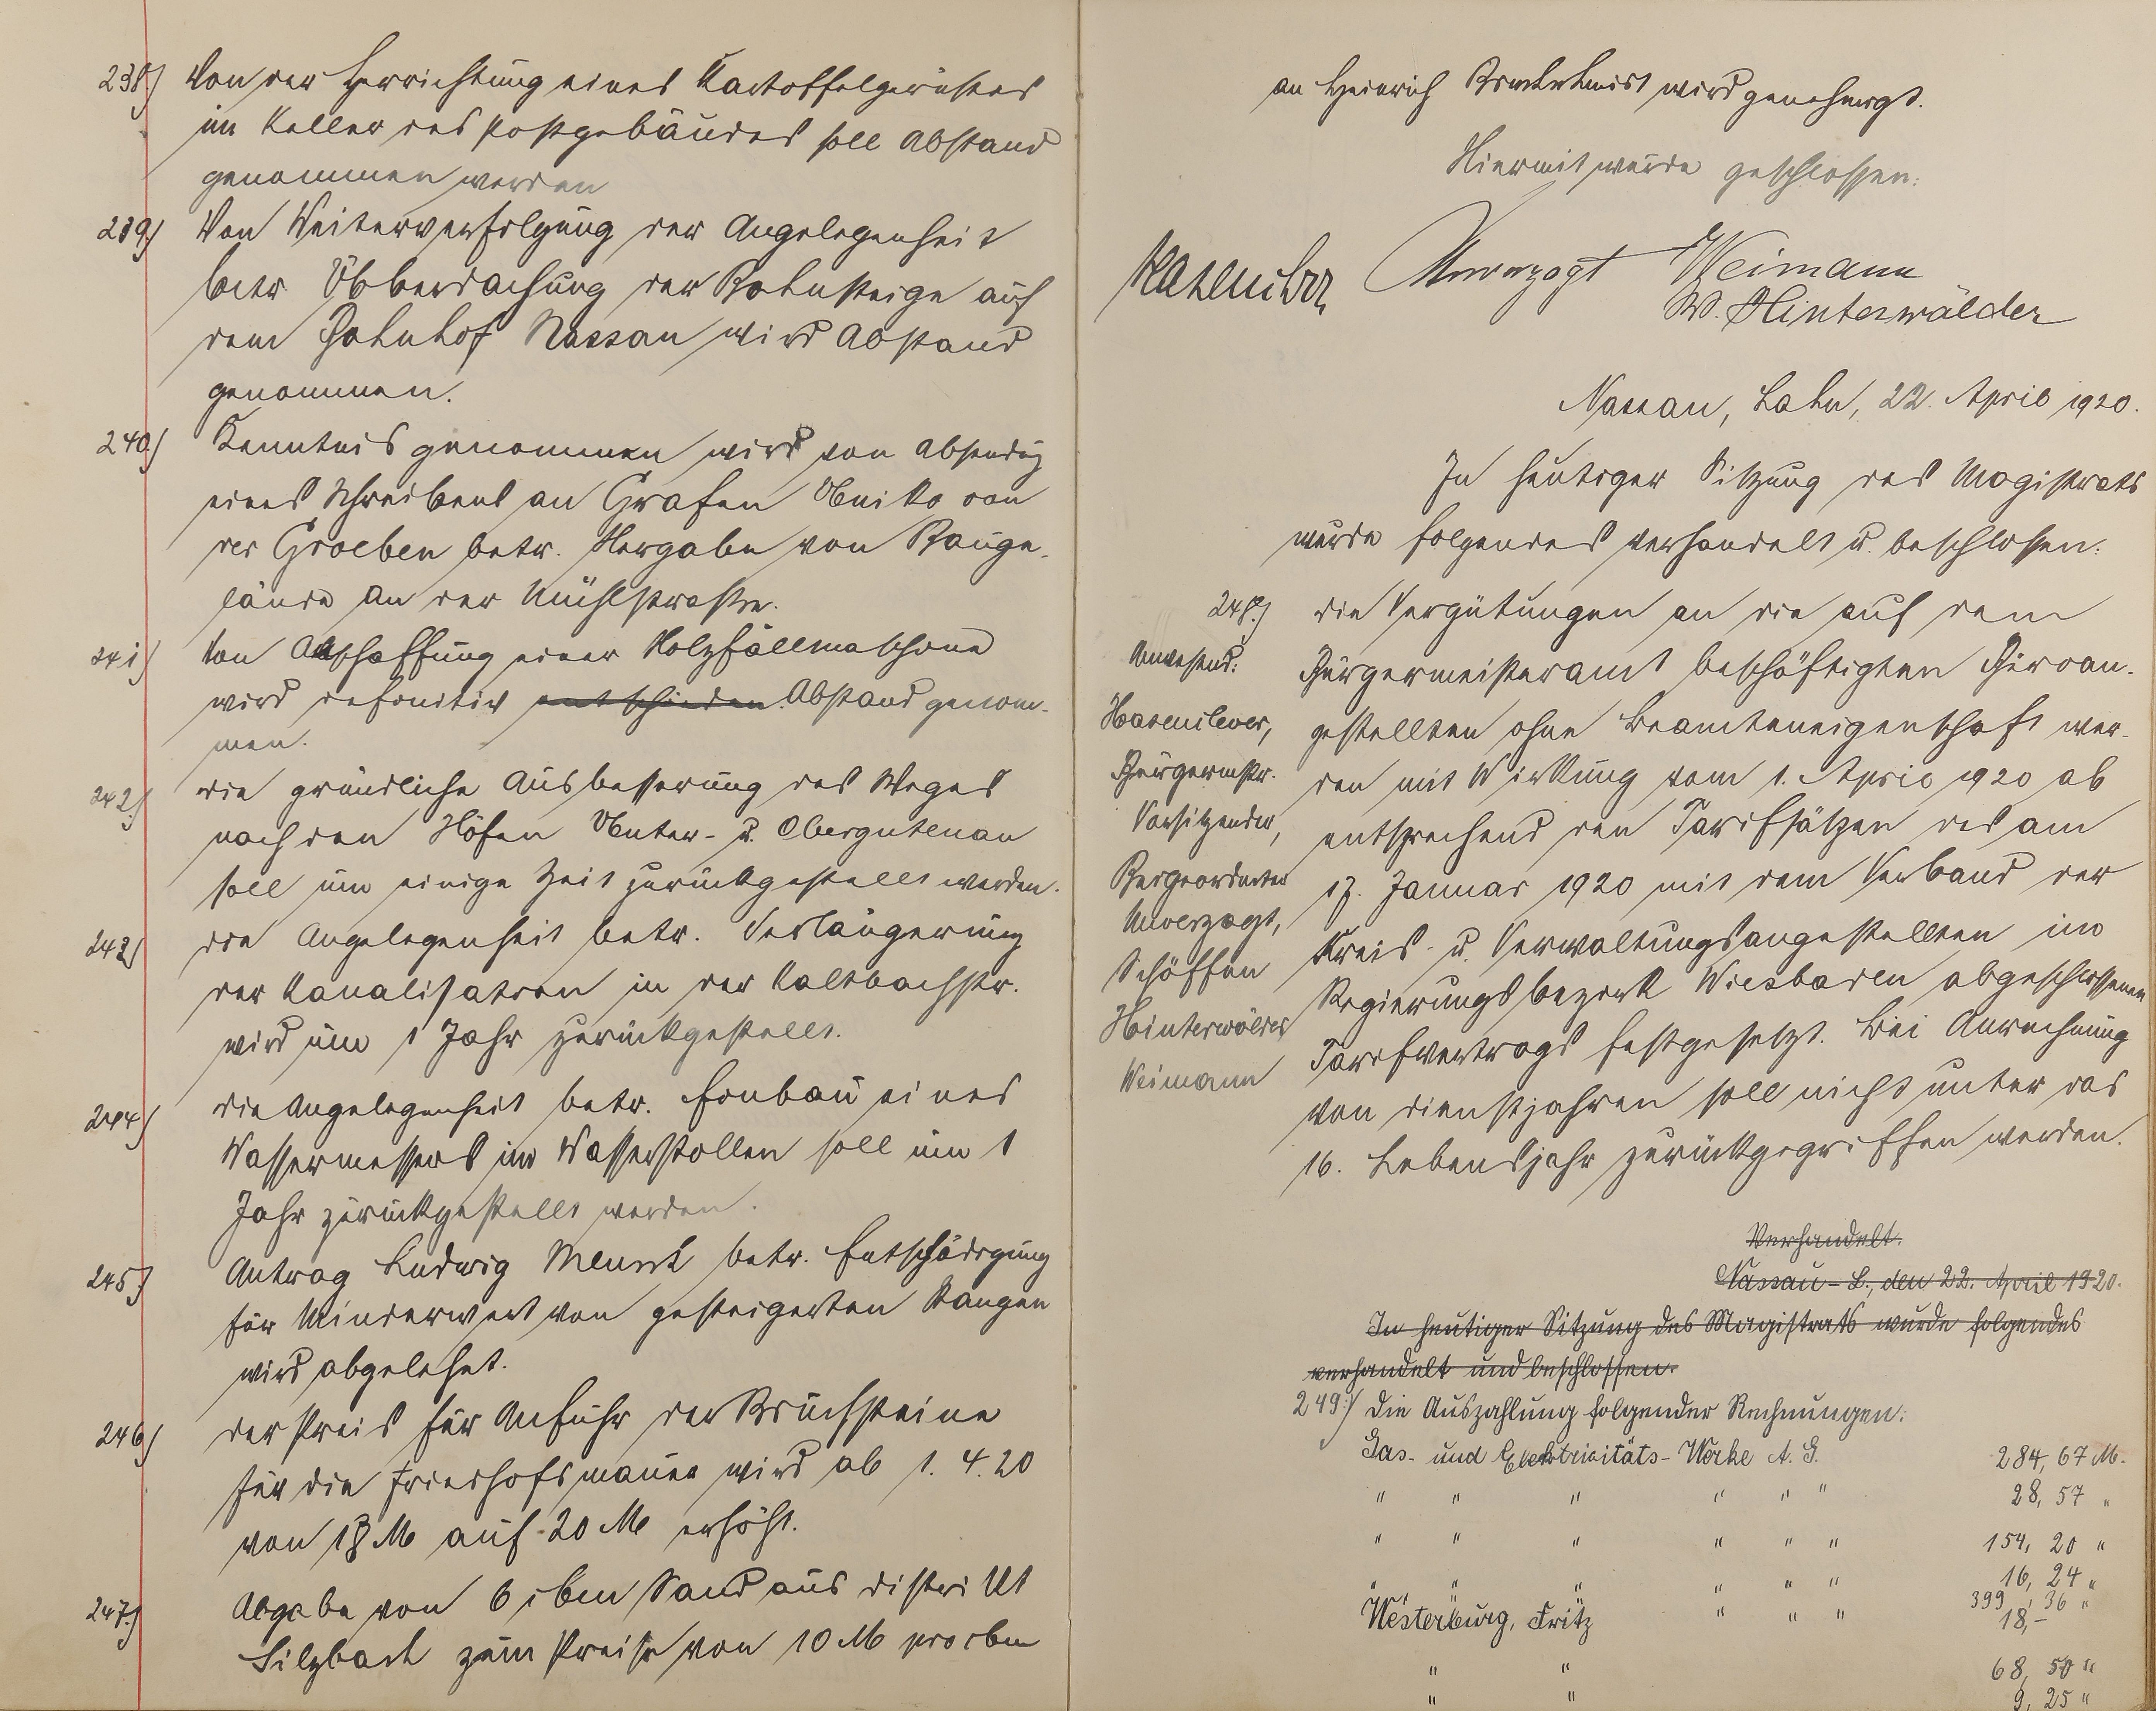 238.) Von der Herrichtung eines Kartoffelgerüstes
im Keller des Postgebäudes soll Abstand
genommen werden
239.) Von Weiterverfolgung der Angelegenheit
betr. Überdachung der Bahnsteige auf
dem Bahnhof Nassau wird Abstand
genommen.
240.) Kenntnis genommen wird von Absendg
eines Schreibens an Grafen Uniko von
der Groeben betr. Hergabe von Bauge-
lände an der Mühlstrasse.
241) Von Anschaffung einer Holzfällmaschine
wird definitiv entschieden Abstand genom-
men.
242.) die gründliche Ausbesserung des Weges
nach den Höfen Unter- u. Obergutenau
soll um einige Zeit zurückgestellt werden.
243) die Angelegenheit betr. Verlängerung
der Kanalisation in der Kaltbachstr.
wird um 1 Jahr zurückgestellt.
244) die Angelegenheit betr. Einbau eines
Wassermessers im Wasserstollen soll um 1
Jahr zurückgestellt werden.
245.) Antrag Ludwig betr. Entschädigung
für Minderwert von gesteigerten Stangen
wird abgelehnt.
246) der Preis für Anfuhr der Bruchsteine
für die Friedhofsmauer wird ab 1. 4. 20
von 18 M auf 20 M erhöht.
247.) Abgabe von 6 cbm Sand aus Distrikt
Silzbach zum Preise von 10 M pro cbm
an Heinrich wird genehmigt.
Hiermit wurde geschlossen:
Hasenclever Unverzagt Weimann
W. Hinterwälder
Nassau, Lahn, 22. April 1920.
In heutiger Sitzung des Magistrats
wurde folgendes verhandelt u. beschlossen:
Anwesend:
Hasenclever,
Bürgermstr.
Vorsitzender,
Beigeordneter
Unverzagt,
Schöffen
Hinterwälder
Weimann
248.) die Vergütungen an die auf dem
Bürgermeisteramt beschäftigten Büroan-
gestellten ohne Beamteneigenschaft wer-
den mit Wirkung vom 1. April 1920 ab
entsprechend den Tarifsätzen des am
17. Januar 1920 mit dem Verband der
Kreis- u. Verwaltungsangestellten im
Regierungsbezirk Wiesbaden abgeschlossenen
Tarifvertrags festgesetzt. Bei Anrechnung
von Dienstjahren soll nicht unter das
16. Lebensjahr zurückgegriffen werden.
Verhandelt.
Nassau-L., den 22. April 1920.
In heutiger Sitzung des Magistrats wurde folgendes
verhandelt und beschlossen.
249.) Die Auszahlung folgender Rechnungen:
Gas- und Elektrizitäts-Werke A. G. 284,67 M.
" " " " " " 28,57 "
" " " " " " 154,20 "
" " " " " " 16,24 "
" " " 399,36 "
Westerburg, Fritz 18,-
" " 68,50 "
" " 9,25 "